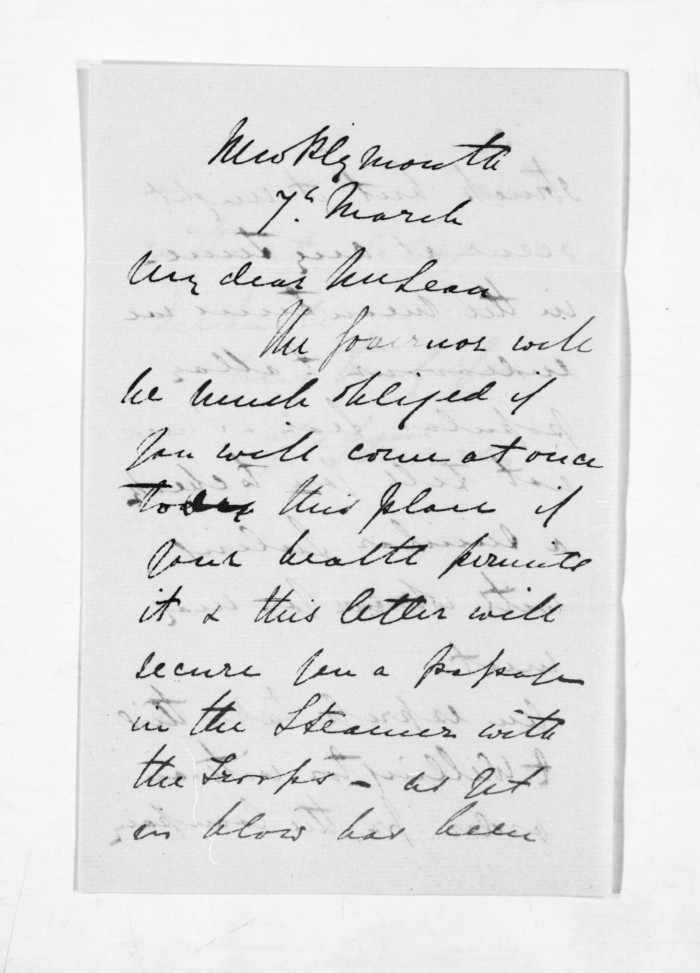 New Plymouth
7th. March
My dear McLean
The Governor will
be much obliged if
you will come at once
to this place if
your health permits
it & this letter will
secure you a passage
in the Steamer with
the Troops - as yet
no blow has been